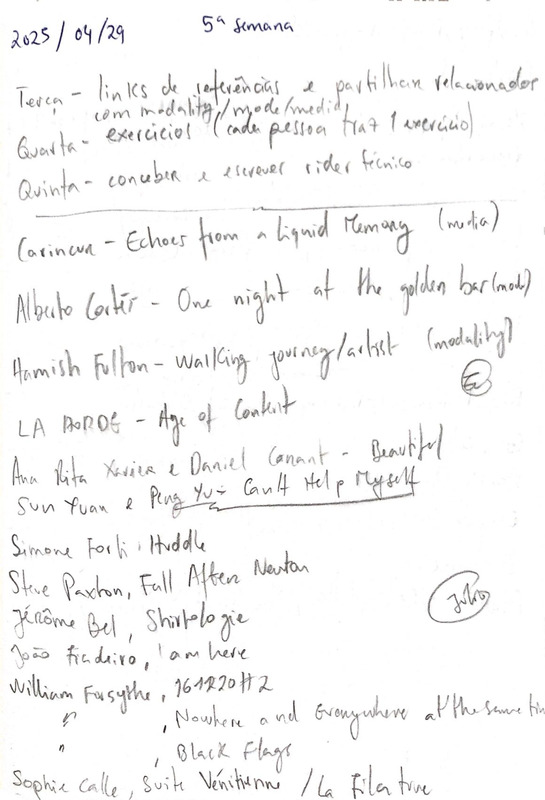 2025/04/29 5ª semana
Terça - links de referências e partilhar relacionados
com modality/mode/media
Quarta - exercícios (cada pessoa traz 1 exercício)
Quinta - conceber e escrever rider técnico
- Echoes from a Liquid Memory (media)
Alberto Cortés - One night at the golden bar (mode)
Hamish Fulton - walking journey/artist (modality)
Eu
LA HORDE - Age of Content
Ana Rita Xavier e Daniel - Beautiful
Sun Yuan e Peng Yu - Can't Help Myself
Simone Forti, Huddle
Steve Paxton, Fall After Newton
Julio
Jérôme Bel, Shirtologie
João Fiadeiro, I am here
William Forsythe, #2
" , Nowhere and Everywhere at the same tim
" , Black Flags
Sophie Calle, Suite Vénitienne / La Filature